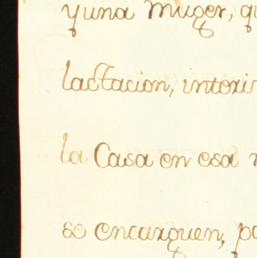 y una Muger, q
lactacion, interi
la Casa en esa
se encarguen, p